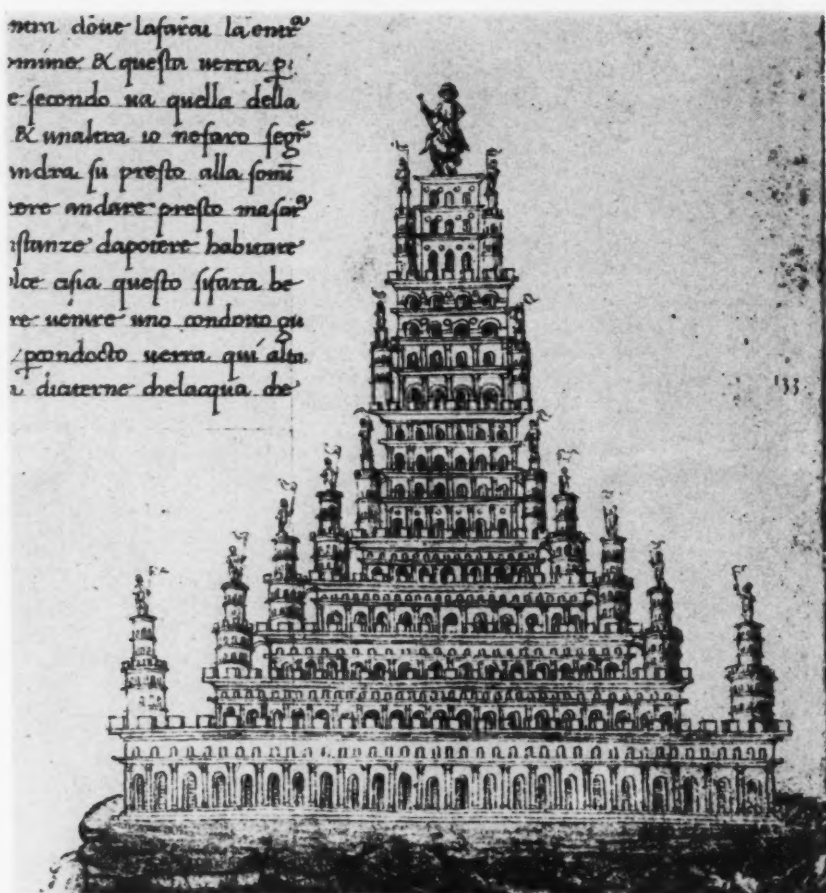 dove lasarai la entr̃a
omine & questa uerra p̱
e secondo ua quella della
& unaltra io nefaro segr̃e
andra su presto alla som̃i
andare presto ma
stanze dapotere habitare
lce cisia questo sifara be
re uenire uno condotto qu
condocto uerra qui alta
diciterne chelacqua che
133